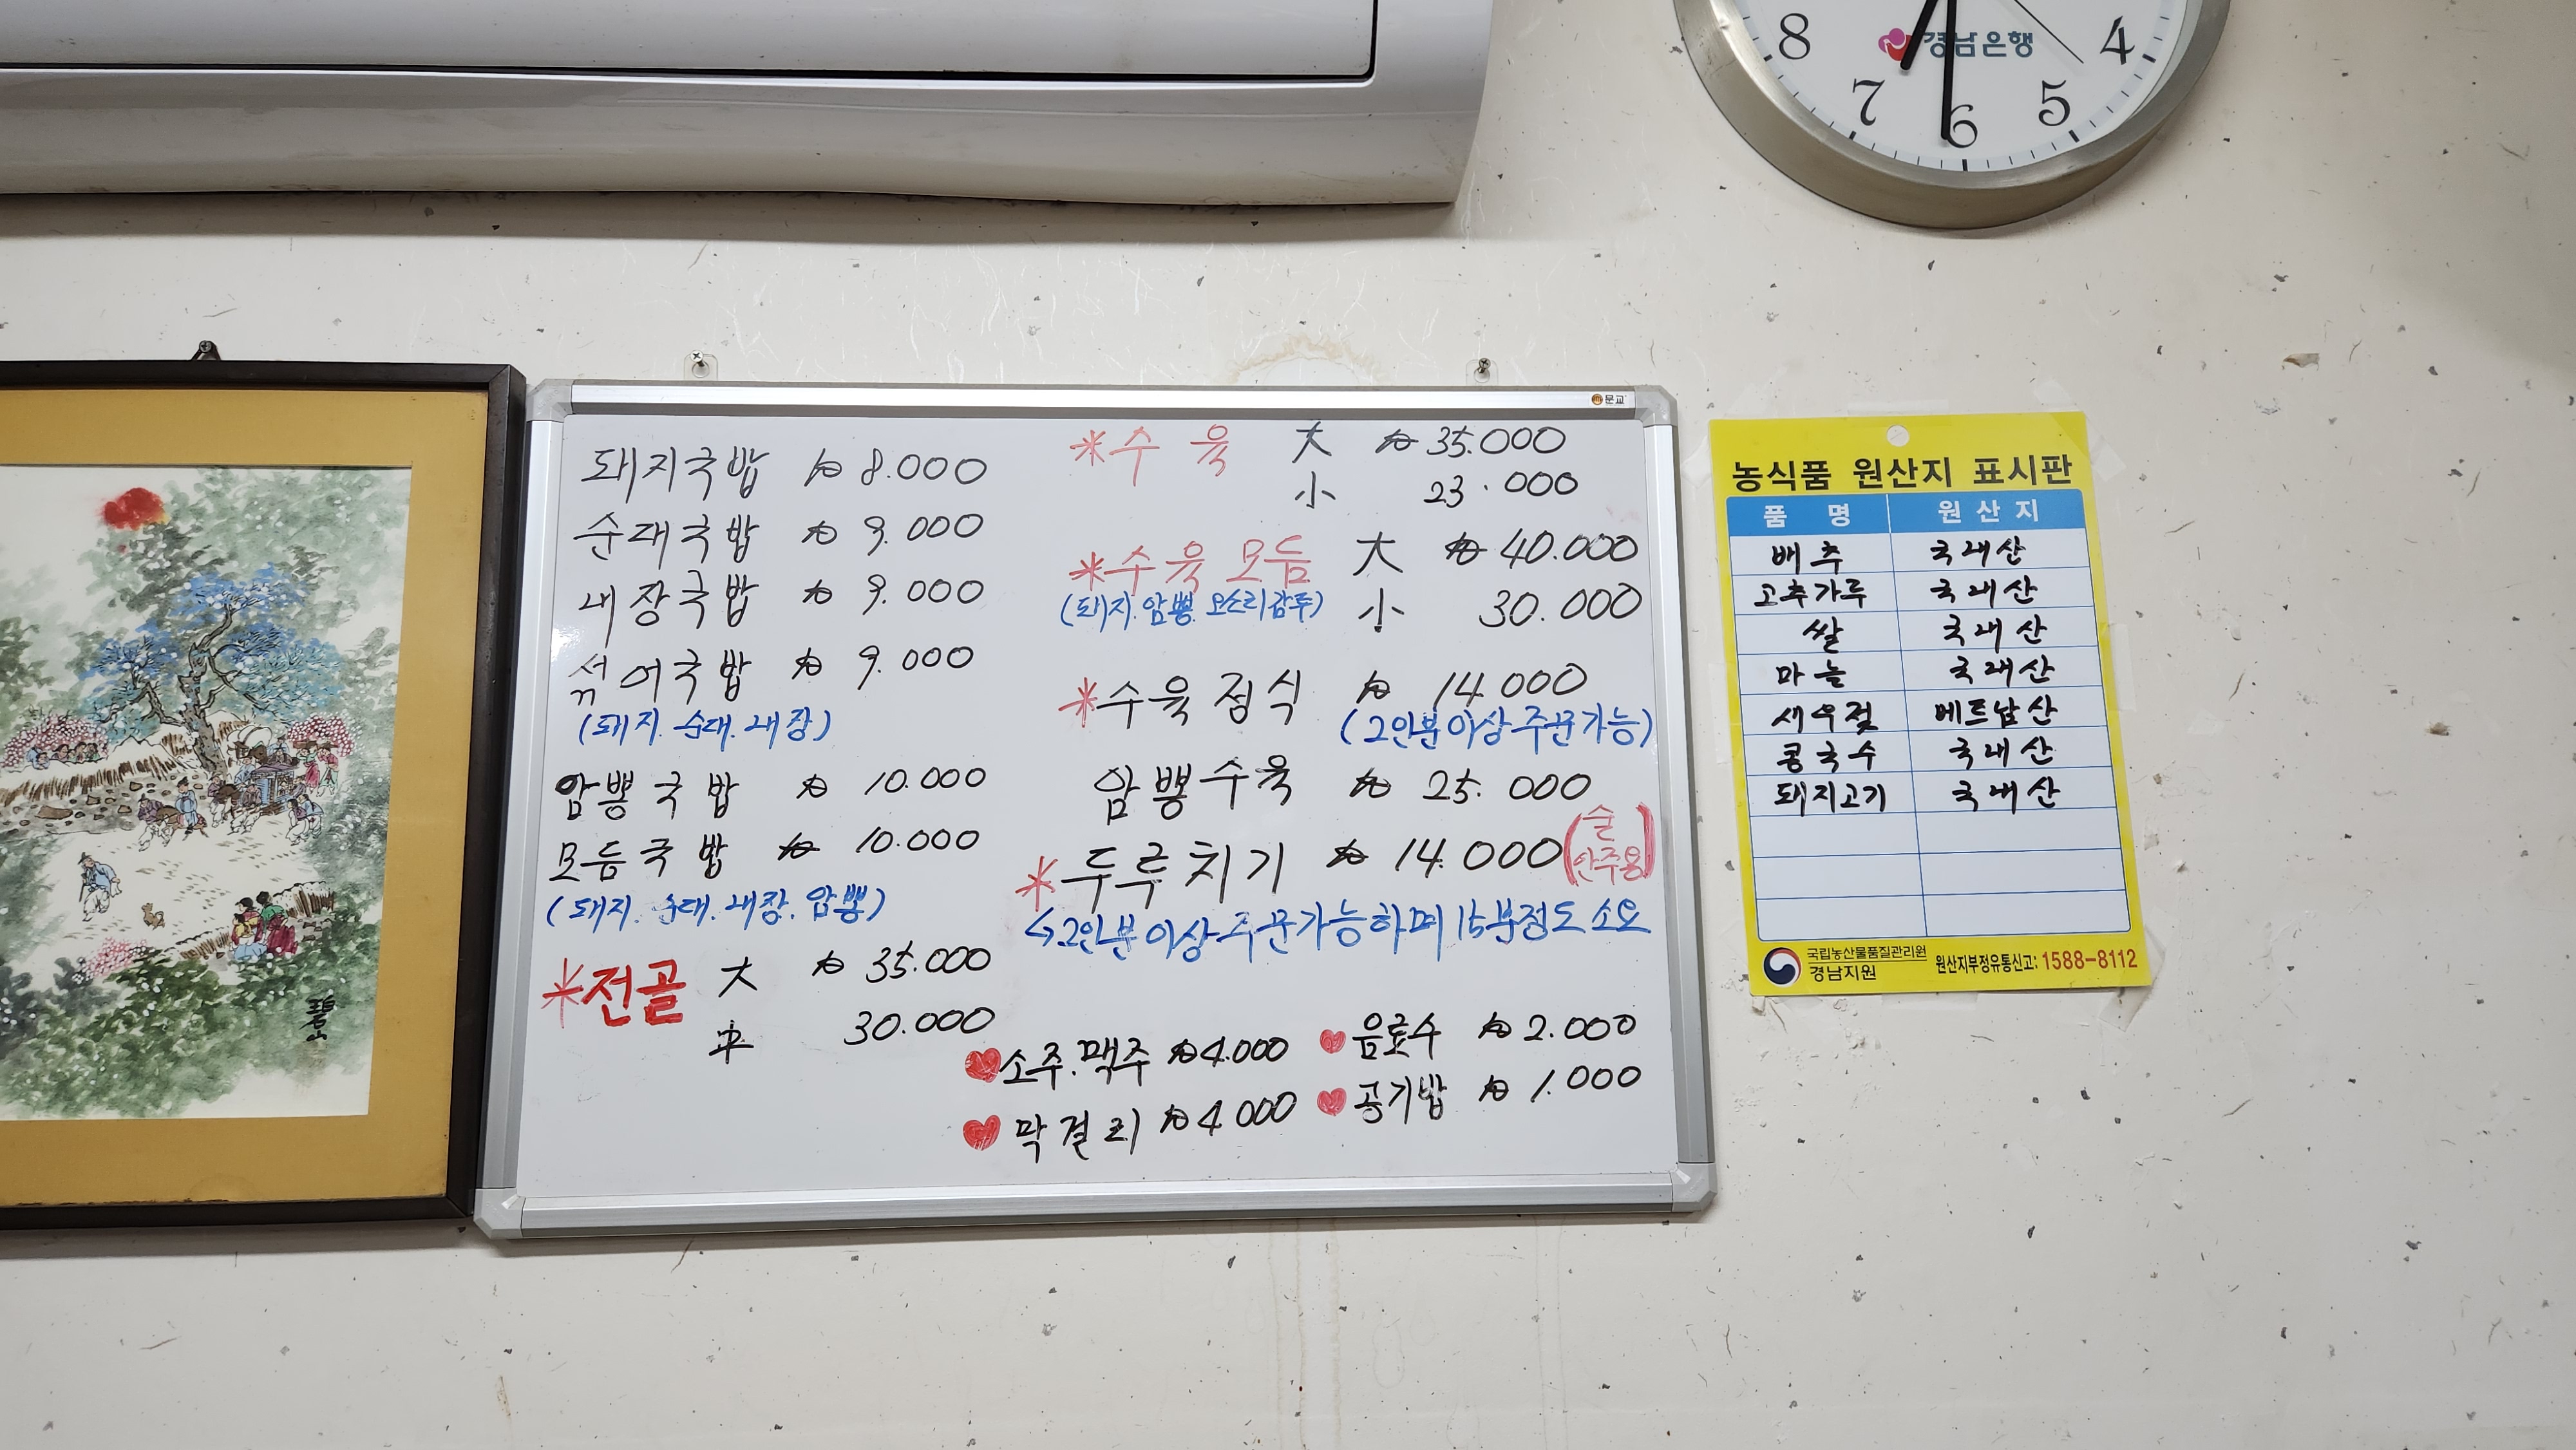 8
경남은행
4
7
5
6
문교
돼지국밥 ₩ 8.000
순대국밥 ₩ 9.000
내장국밥 ₩ 9.000
섞어국밥 ₩ 9.000
(돼지. 순대. 내장)
암뽕국밥 ₩ 10.000
모듬국밥 ₩ 10.000
(돼지. 순대. 내장. 암뽕)
*전골 大 ₩ 35.000
中 30.000
*수육 大 ₩ 35.000
小 23.000
*수육모듬 大 ₩ 40.000
(돼지.암뽕.오소리감투) 小 30.000
*수육정식 ₩ 14.000
(2인분이상주문가능)
암뽕수육 ₩ 25.000
*두루치기 ₩ 14.000 (술안주용)
↳2인분이상주문가능하며 15분정도소요
♥소주.맥주 ₩4.000
♥음료수 ₩ 2.000
♥막걸리 ₩4000
♥공기밥 ₩ 1.000
농식품 원산지 표시판
품 명 원 산 지
배추 국내산
고추가루 국내산
쌀 국내산
마늘 국내산
새우젓 베트남산
콩국수 국내산
돼지고기 국내산
국립농산물품질관리원
경남지원
원산지부정유통신고: 1588-8112
碧山